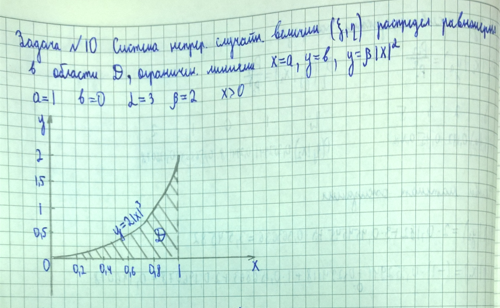 Задача №10 Система непрер. случайн. величин (ξ, η) распредел. равномерно
в области D, ограничен. линиями x=a, y=b, y=β|x|^α
a=1 b=0 α=3 β=2 x>0
y
2
1,5
1
0,5
0
y=2|x|³
D
0,2 0,4 0,6 0,8 1 x